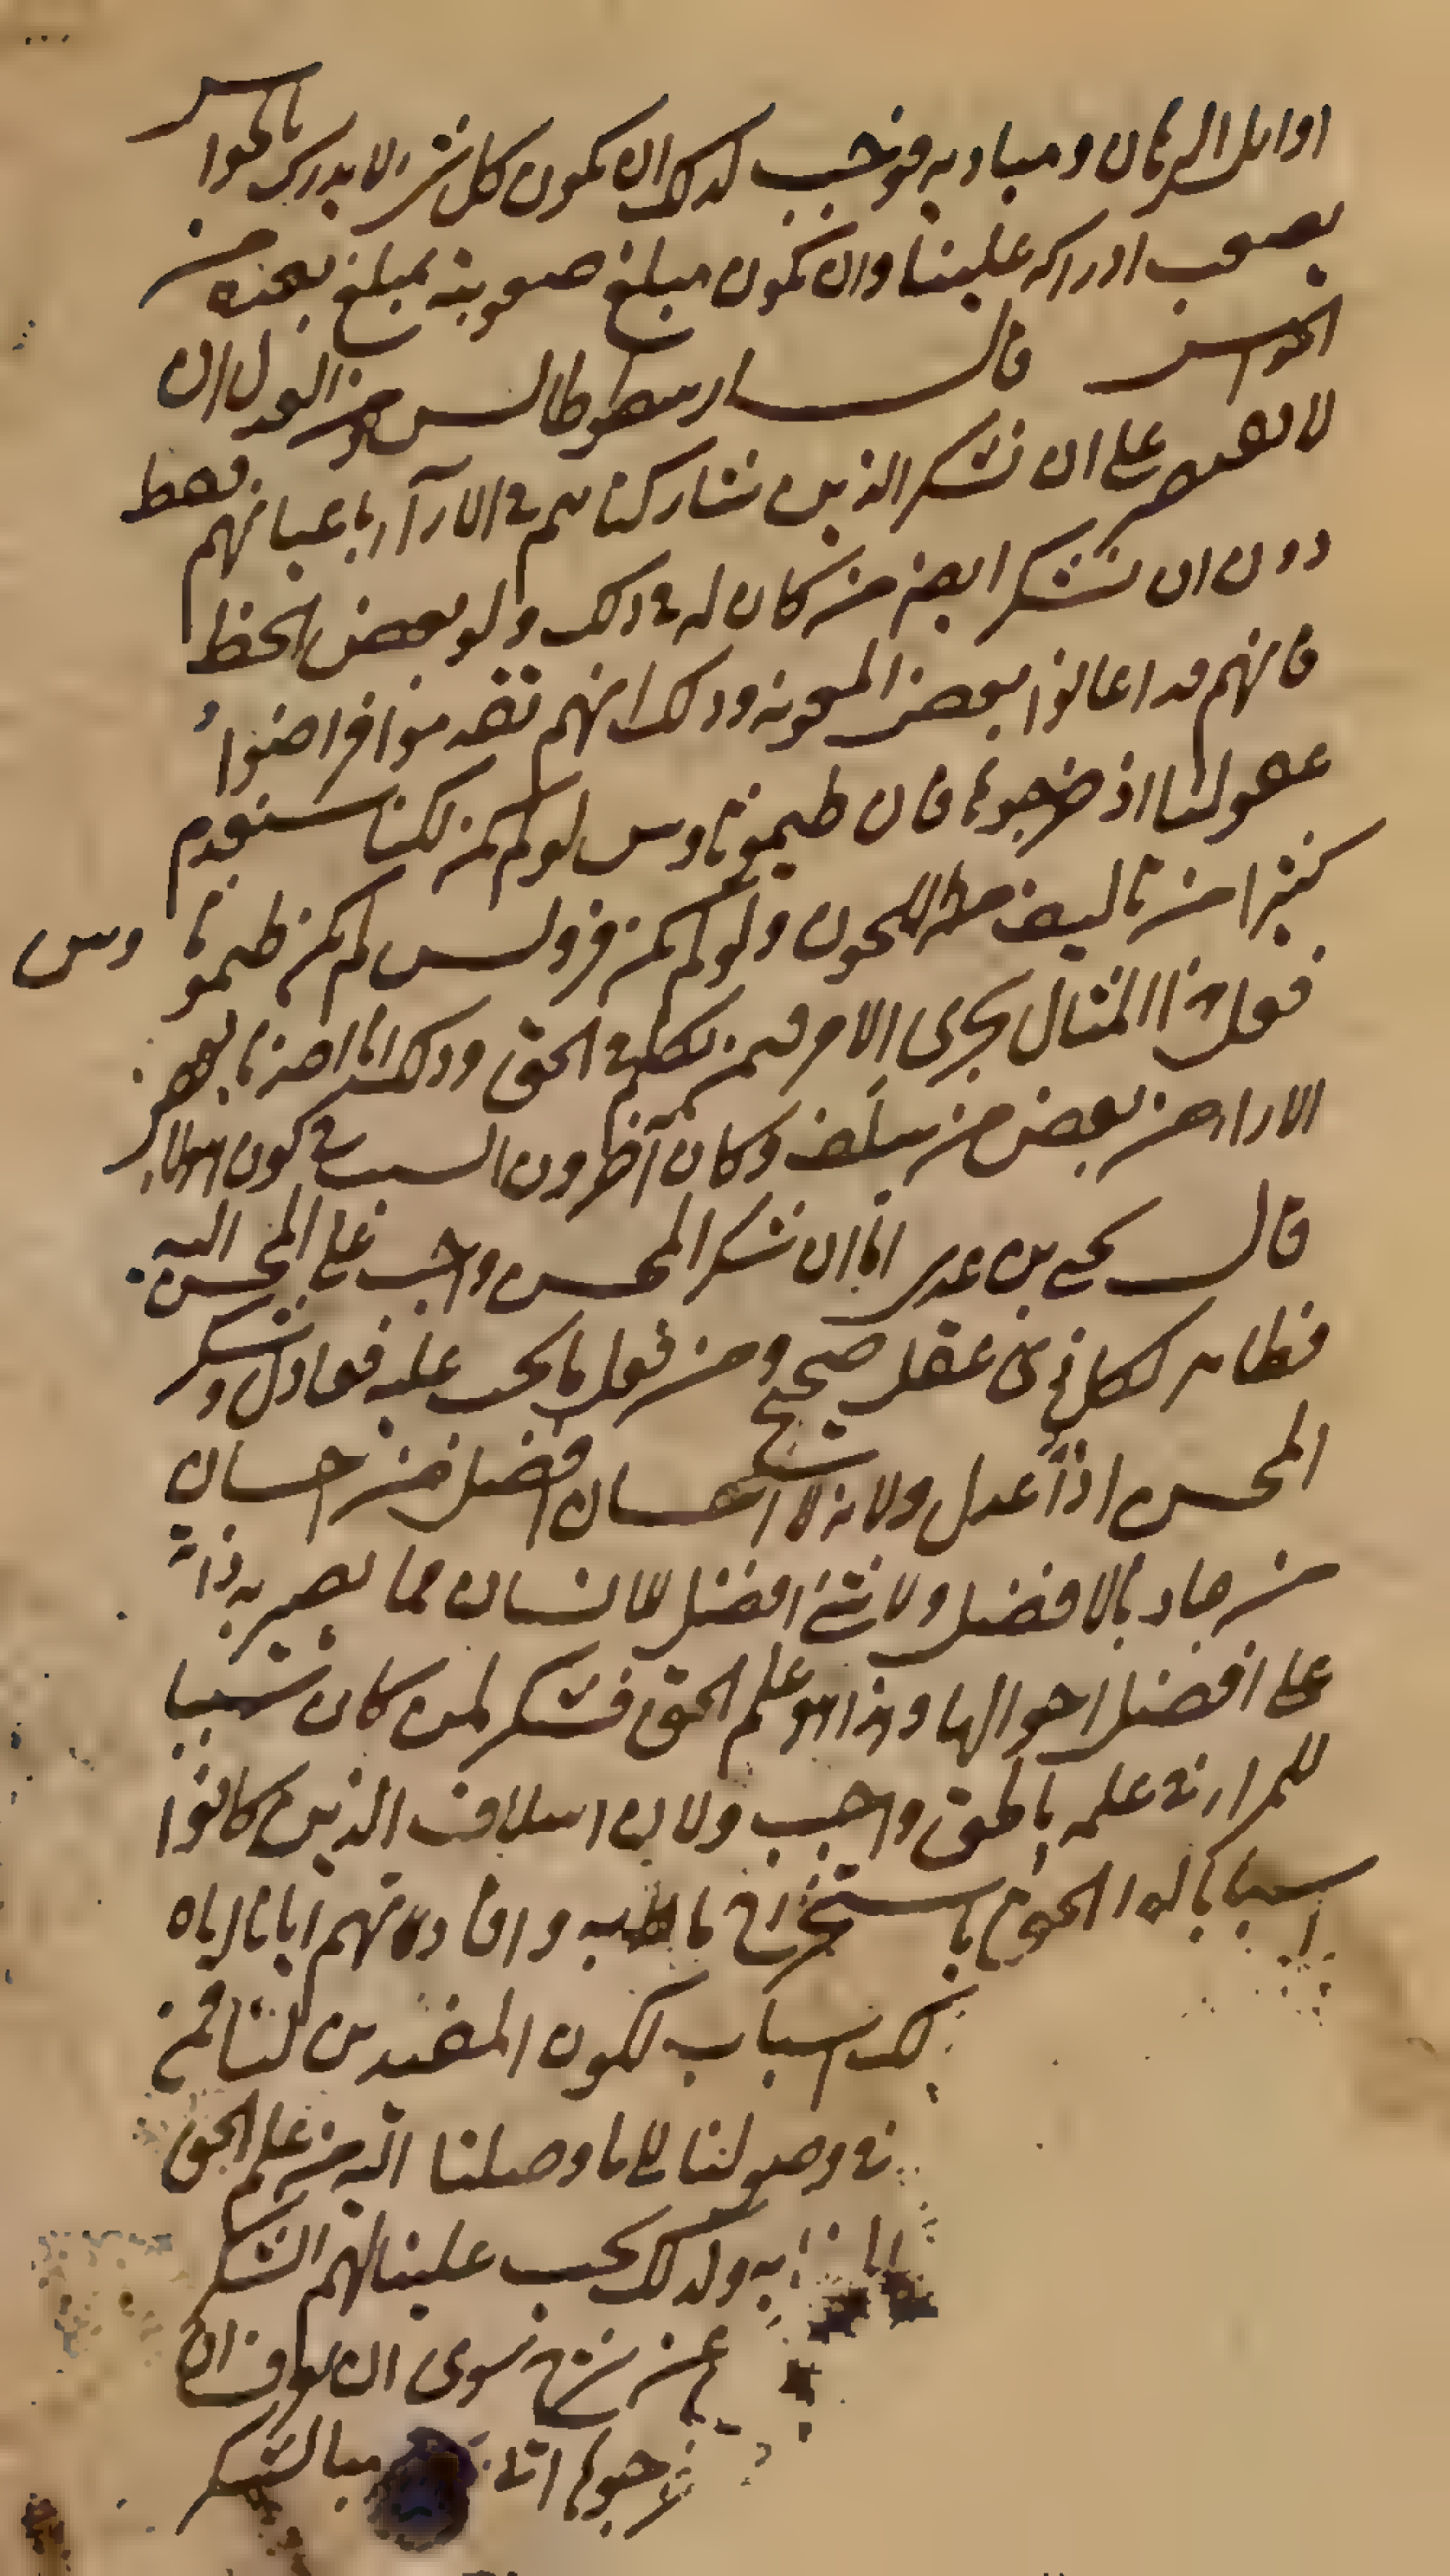 اوايل البرهان ومباديه فوجب لذلك ان يكون كل شى لا يدرك بالحواس
يصعب ادراكه علينا وان يكون مبلغ صعوبته بمبلغ بعده من
الحواس قال ارسطوطالس ومن العدل ان
لا نقتصر على ان نشكر الذين نشاركناهم فى الاراء باعيانهم فقط
دون ان نشكر ايضا من كان له فى ذلك ولو بعض الحظ
فانهم قد اعانوا بعض المعونة وذلك انهم تقدموا فراضوا
عقولنا اذ خرجونا فان طيموثاوس لو لم يكن لكنا سنعدم
كثيرا من تاليف اللحون ولو لم يكن فرولس لم يكن طيموثاوس
فعلى هذا المثال يجرى الامر فيمن تكلم فى الحق وذلك انا اخذنا بعض
الاراء من بعض من سلف وكان آخرون السبب فى كون هولاء
قال يحيى بن عدى اما ان شكر المحسن واجب على المحسن اليه
فظاهر لكل ذى عقل صحيح ومن فعل ما يجب عليه فعادل وشكر
المحسن اذاً عدل ولانه لا احسان افضل من احسان
من جاد بالافضل ولا شئ افضل للانسان مما يصير به ذاته
على افضل احوالها وهذا هو علم الحق فشكر لمن كان سببا
للمرء فى علمه بالحق واجب ولان اسلاف الذين كانوا
اسبابا لهذا الحق باستخراج ما وافادتهم ابانا اياه
اسباب لكون المفيدين لنا فمن
فى وصولنا الى ما وصلنا اليه من علم الحق
به ولذلك يجب علينا لهم الشكر
سوى ان
خرجونا بالشكر